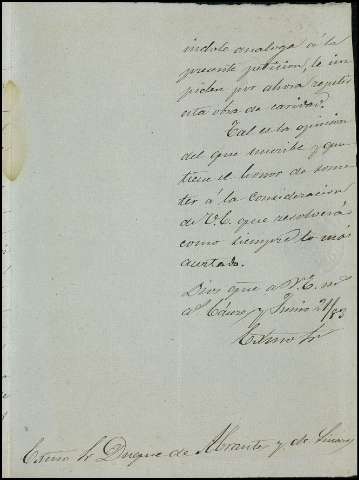 indole analoga á la
presente peticion, le im
piden por ahora repetir
esta obra de caridad.
Tal es la opinion
del que suscribe y que
tiene el honor de some
ter á la consideracion
de V.E. que resolverá
como siempre lo más
acertado.
Dios gue a V.E. ms
as Cáceres y Junio 21/83
Exmo Sr
Exmo Sr Duque de Abrantes y de Linares